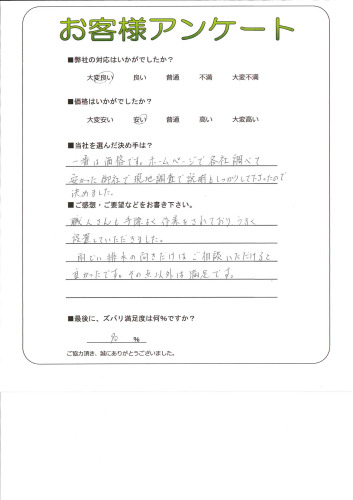 お客様アンケート
■弊社の対応はいかがでしたか?
大変良い 良い 普通 不満 大変不満
■価格はいかがでしたか?
大変安い 安い 普通 高い 大変高い
■当社を選んだ決め手は?
一番は価格です。ホームページで各社調べて
安かった御社で現地調査で説明もしっかりして下さったので
決めました。
■ご感想・ご要望などをお書き下さい。
職人さんも手際よく作業をされており、うまく
設置していただきました。
雨どい排水の向きだけはご相談いただけると
良かったです。その点以外は満足です。
■最後に、ズバリ満足度は何%ですか?
90 %
ご協力頂き、誠にありがとうございました。